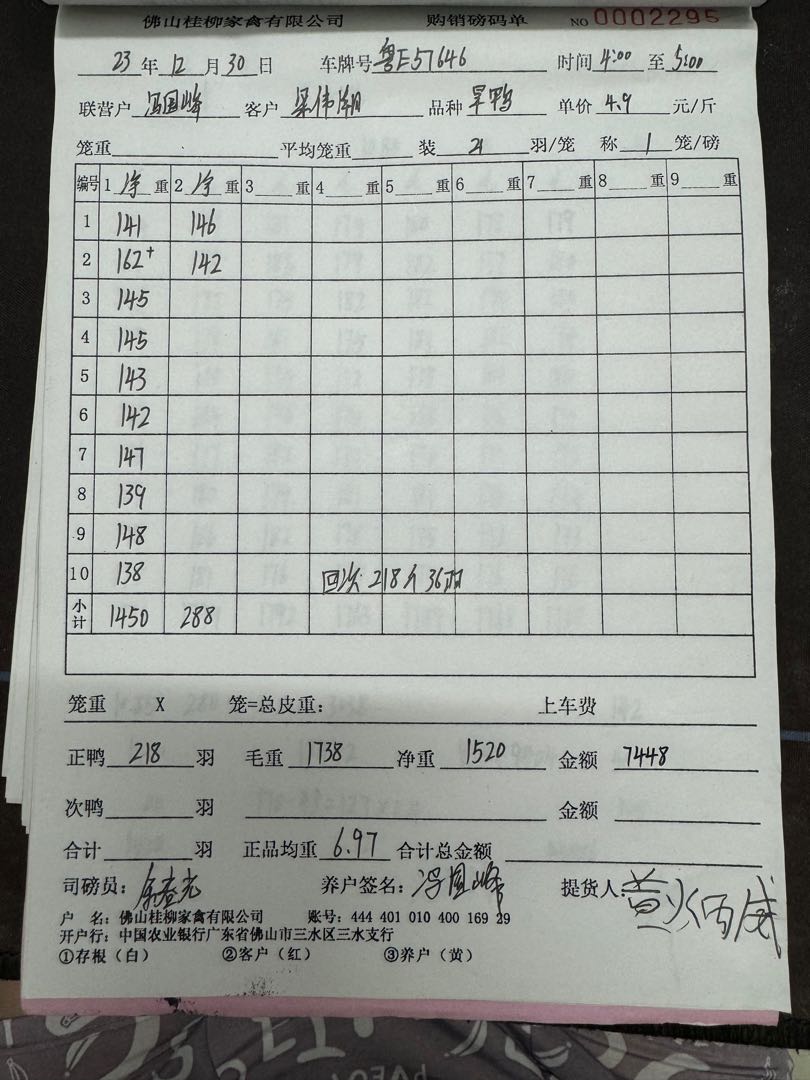 佛山桂柳家禽有限公司 购销磅码单 NO 0002295
23 年 12 月 30 日 车牌号 粤E57646 时间 4:00 至 5:00
联营户 冯国峰 客户 梁伟潮 品种 旱鸭 单价 4.9 元/斤
笼重 平均笼重 装 21 羽/笼 称 1 笼/磅
编号 1 净 重 2 净 重 3 重 4 重 5 重 6 重 7 重 8 重 9 重
1 141 146
2 162+ 142
3 145
4 145
5 143
6 142
7 147
8 139
9 148
10 138 回次 218斤 36羽
小计 1450 288
笼重 X 笼=总皮重: 上车费
正鸭 218 羽 毛重 1738 净重 1520 金额 7448
次鸭 羽 金额
合计 羽 正品均重 6.97 合计总金额
司磅员: 养户签名: 冯国峰 提货人:
户 名: 佛山桂柳家禽有限公司 账号: 444 401 010 400 169 29
开户行: 中国农业银行广东省佛山市三水区三水支行
①存根(白) ②客户(红) ③养户(黄)